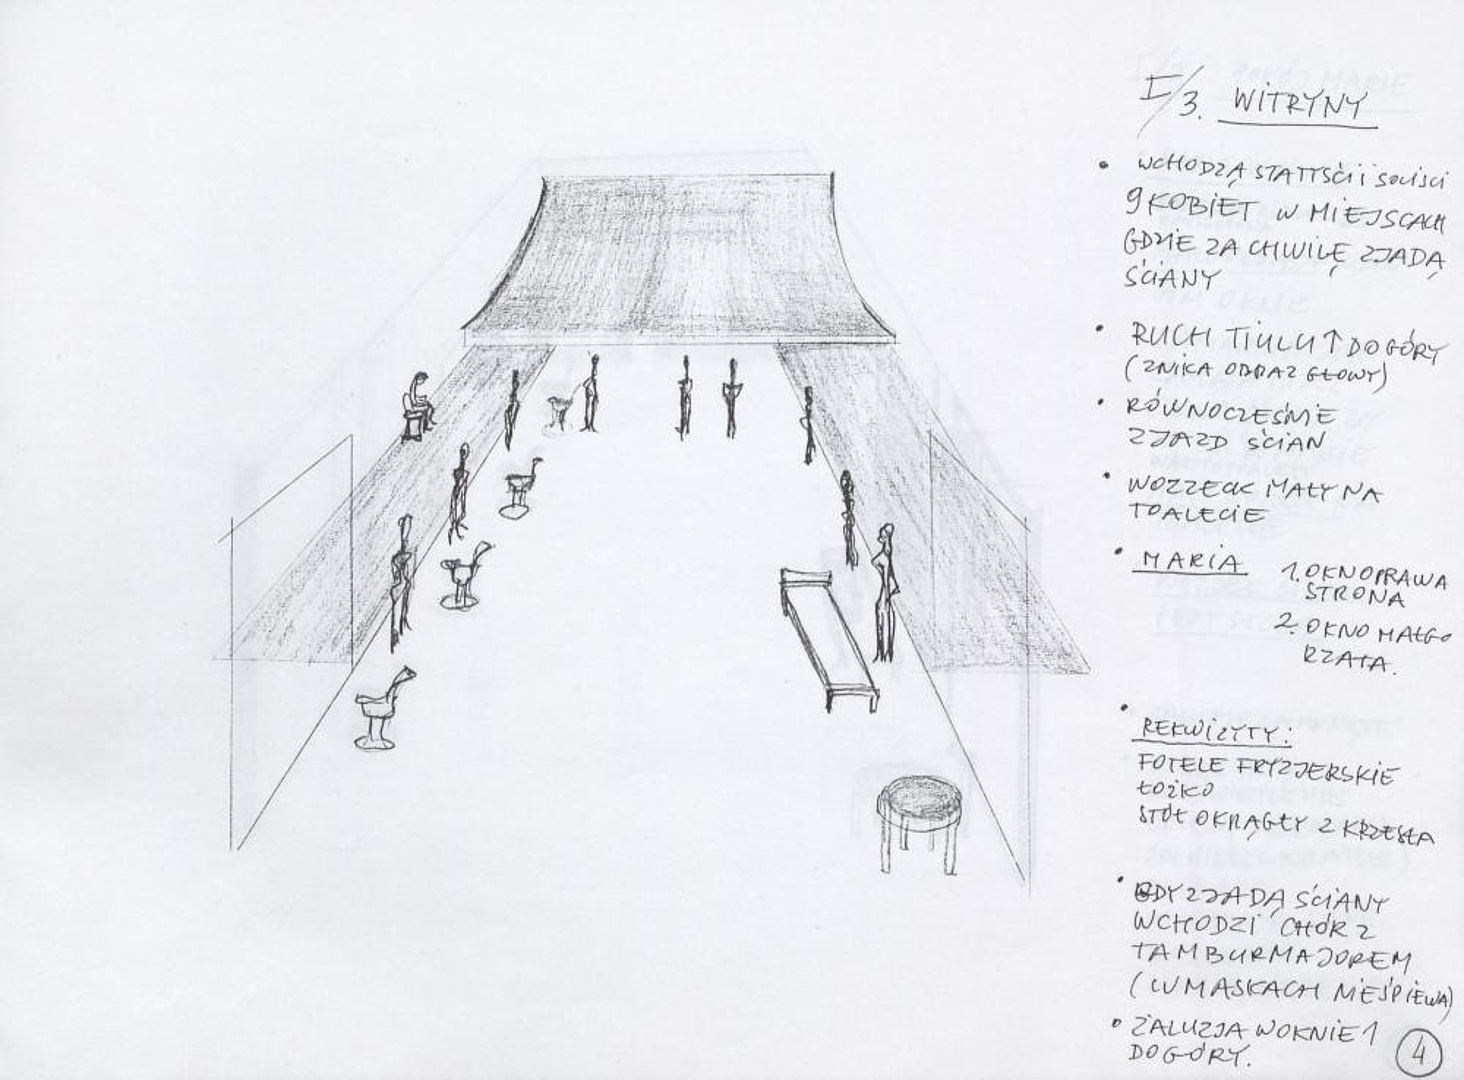 I/3. WITRYNY
• WCHODZĄ STATYŚCI i SOLIŚCI
9 KOBIET W MIEJSCACH
GDZIE ZA CHWILĘ ZJADĄ
ŚCIANY
• RUCH TIULU ↑ DO GÓRY
(ZNIKA OBRAZ GŁOWY)
• RÓWNOCZEŚNIE
ZJAZD ŚCIAN
• WOZZECK MAŁY NA
TOALECIE
• MARIA 1. OKNO PRAWA
STRONA
2. OKNO MAŁGO
RZATA.
• REKWIZYTY:
FOTELE FRYZJERSKIE
ŁOŻKO
STÓŁ OKRĄGŁY 2 KRZESŁA
• GDY ZJADĄ ŚCIANY
WCHODZI CHÓR Z
TAMBURMAJOREM
(W MASKACH NIE ŚPIEWA)
• ŻALUZJA W OKNIE 1
DO GÓRY.
4